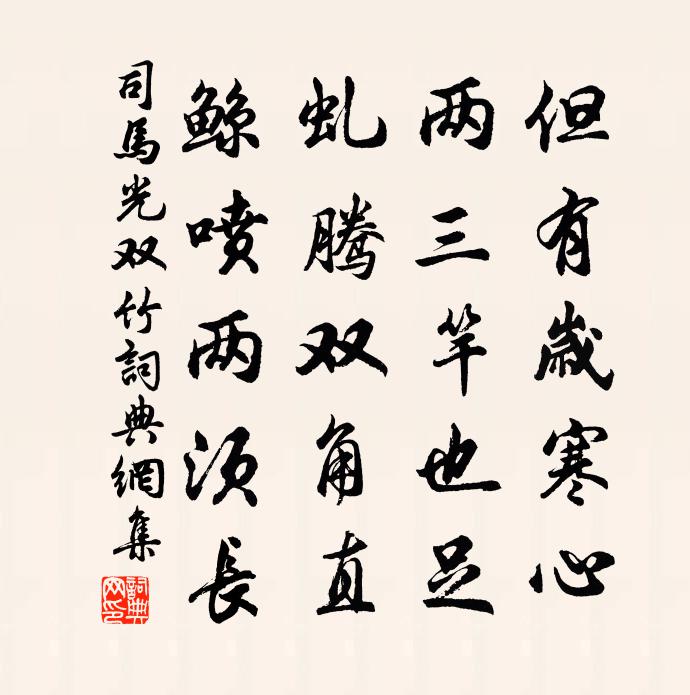 但有歲寒心
两三竿也足
虬騰双角直
鲸噴两須長
司馬光双竹詞典網集
詞典网印